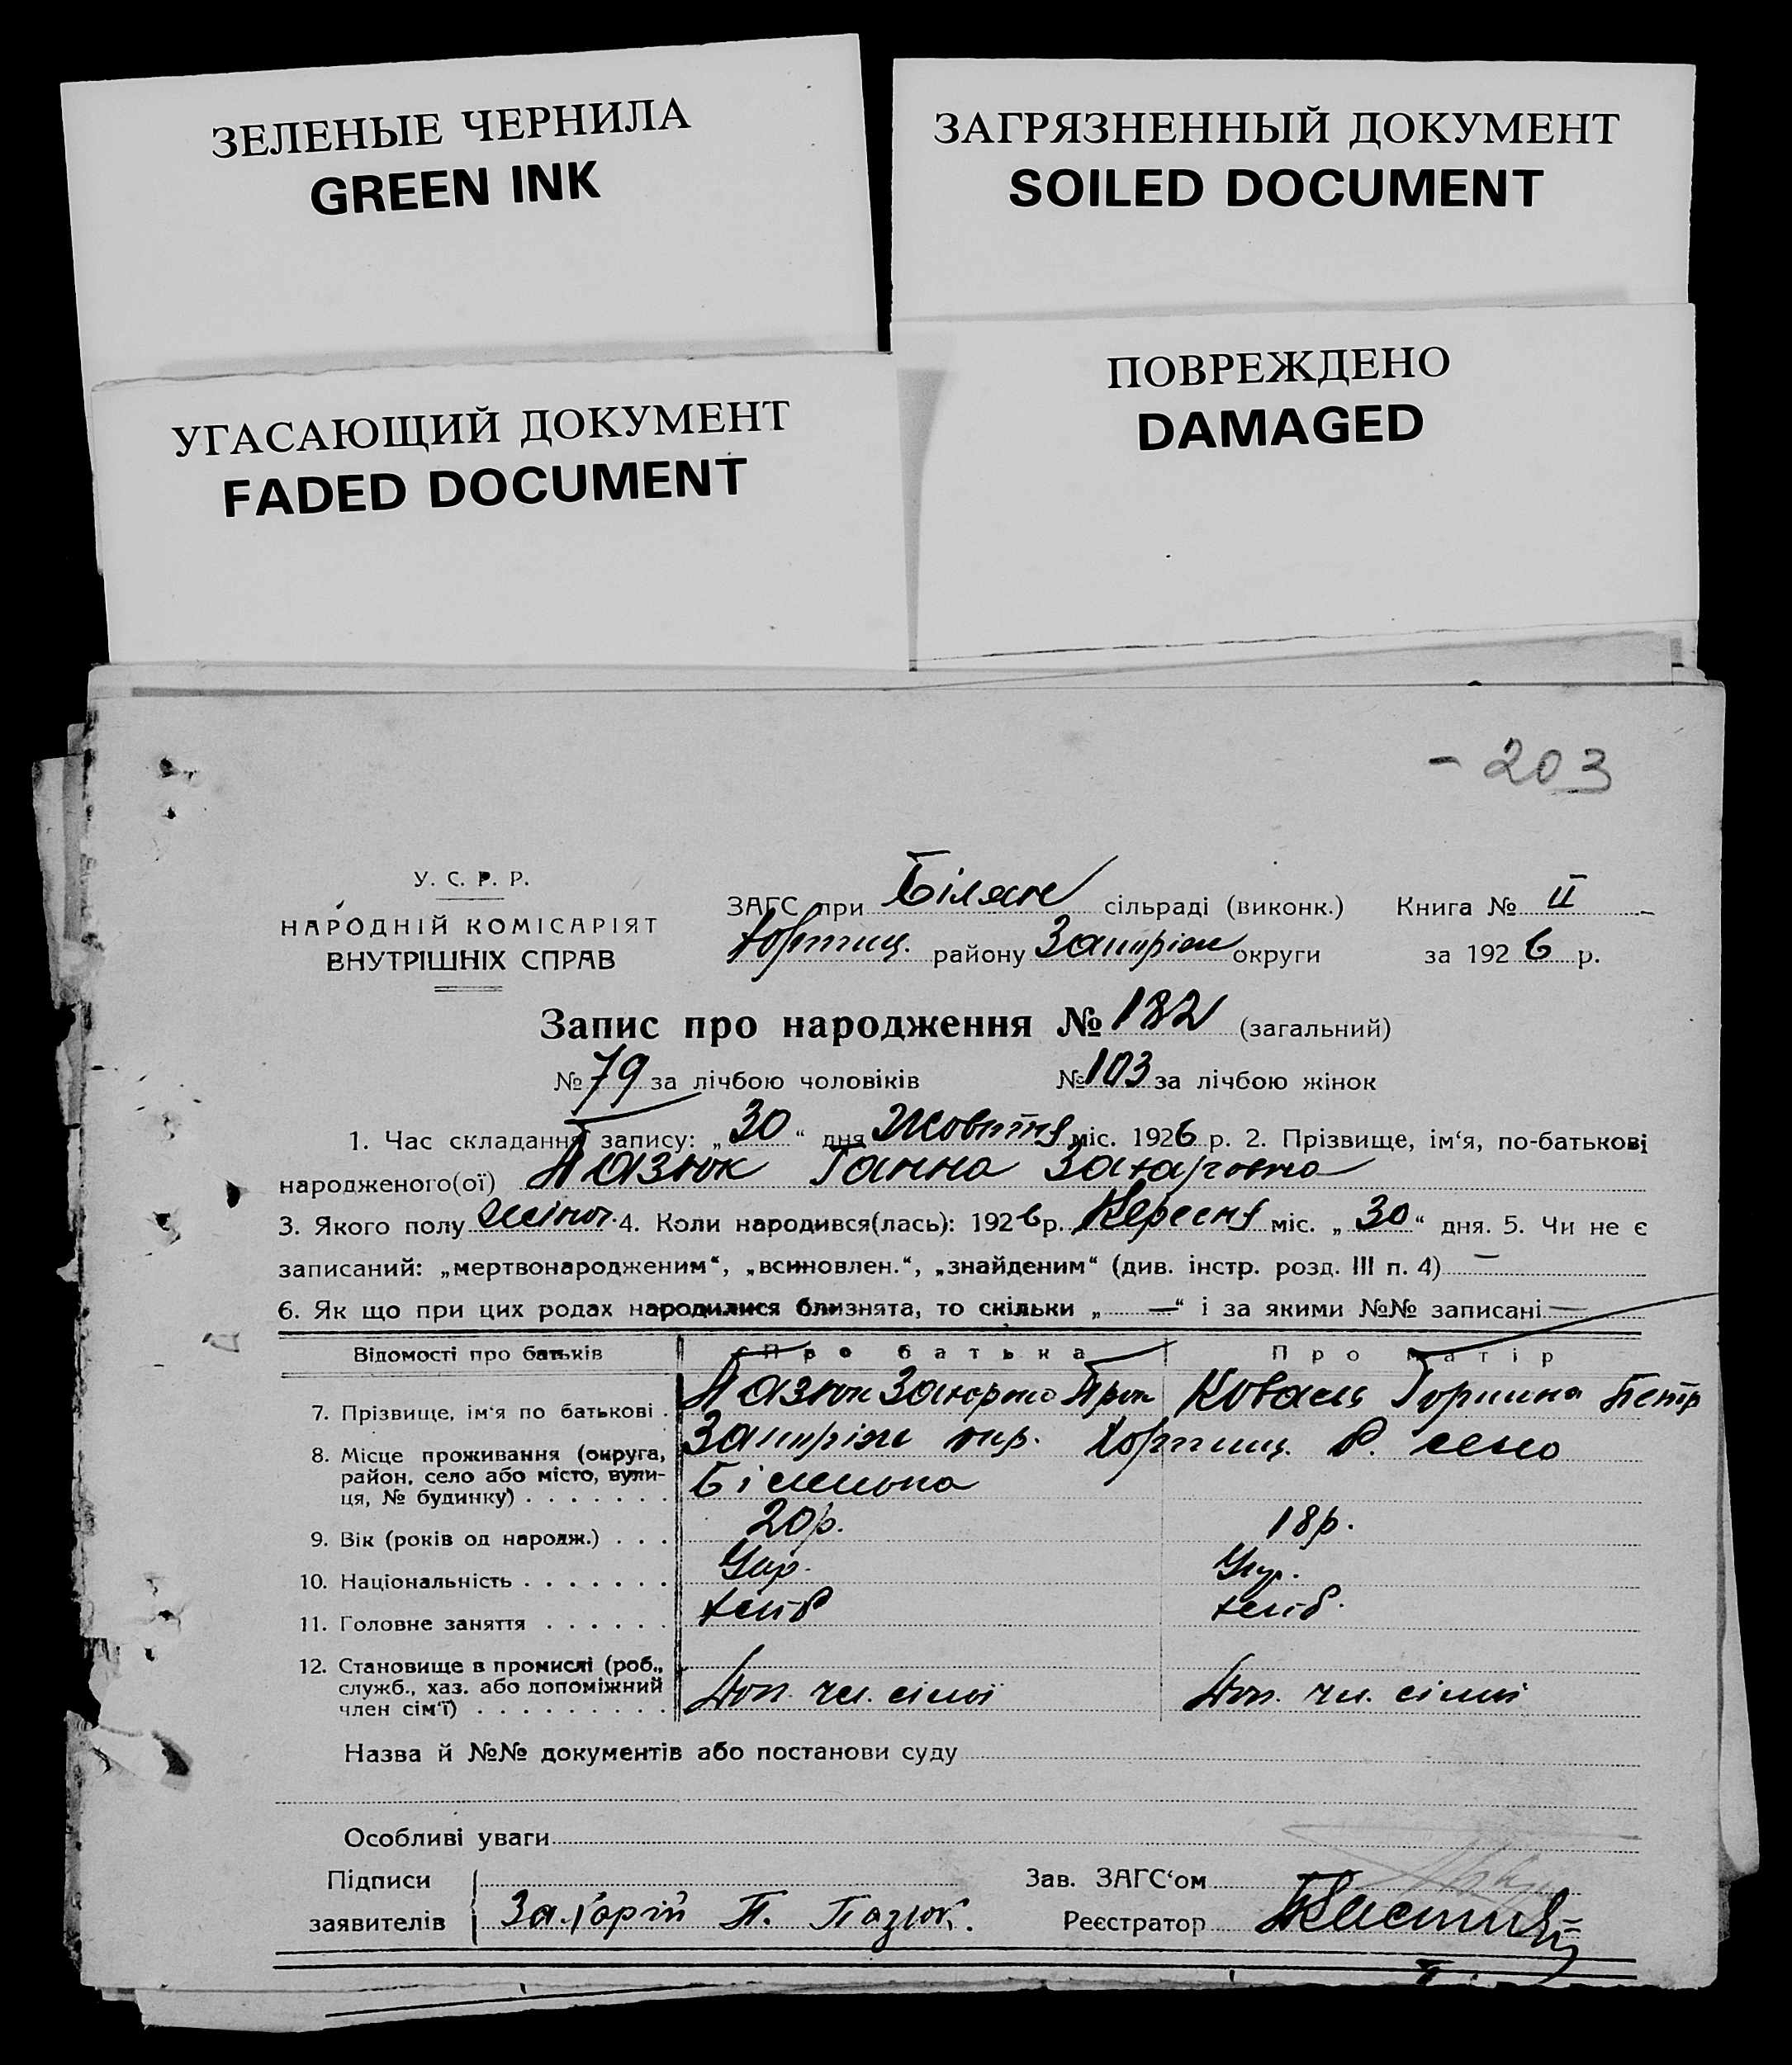 ЗЕЛЕНЫЕ ЧЕРНИЛА
GREEN INK
ЗАГРЯЗНЕННЫЙ ДОКУМЕНТ
SOILED DOCUMENT
УГАСАЮЩИЙ ДОКУМЕНТ
FADED DOCUMENT
ПОВРЕЖДЕНО
DAMAGED
- 203
У. С. Р. Р.
НАРОДНІЙ КОМІСАРІЯТ
ВНУТРІШНІХ СПРАВ
ЗАГС при Білян сільраді (виконк.) Книга № II
Хортиц. району Запоріж округи за 1926 р.
Запис про народження № 182 (загальний)
№ 79 за лічбою чоловіків № 103 за лічбою жінок
1. Час складання запису: „30“ дня Жовтня міс. 1926 р. 2. Прізвище, ім‘я, по-батькові
народженого(ої) Пазюк Ганна Захаровна
3. Якого полу жіноч. 4. Коли народився(лась): 1926 р. Вересня міс. „30“ дня. 5. Чи не є
записаний: „мертвонародженим“, „всиновлен.“, „знайденим“ (див. інстр. розд. III п. 4) —
6. Як що при цих родах народилися близнята, то скільки „—“ і за якими №№ записані —
Відомості про батьків Про батька Про матір
7. Прізвище, ім‘я по батькові . Пазюк Прок Коваль Горпина Петр
8. Місце проживання (округа, Запоріж окр. Хортиц. р. село
район, село або місто, вули-
ця, № будинку) . . . . . . .
9. Вік (років од народж.) . . . 20р. 18р.
10. Національність . . . . . . . Укр. Укр.
11. Головне заняття . . . . . . хліб хліб.
12. Становище в промислі (роб.,
служб., хаз. або допоміжний Доп. чл. сімї Доп. чл. сімї
член сім‘ї) . . . . . . . . .
Назва й №№ документів або постанови суду
Особливі уваги
Підписи Зав. ЗАГС‘ом
заявителів Захарій П. Пазюк. Реєстратор